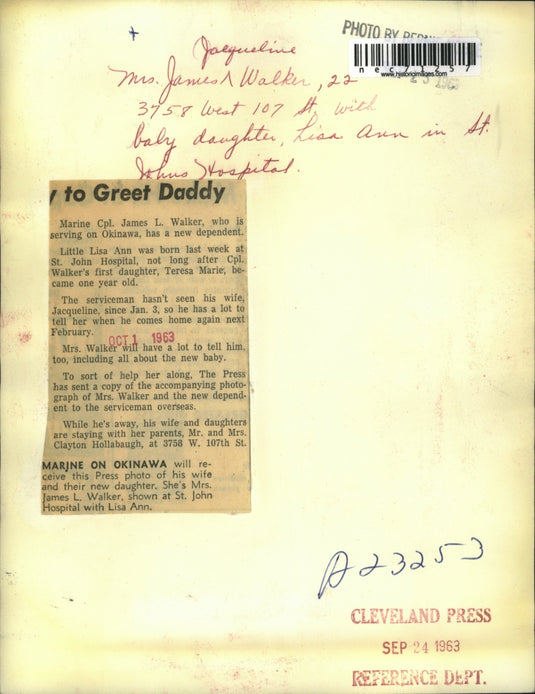 PHOTO BY
nec71257
www.historicimages.com
Jacqueline
Mrs. James Walker, 22
3758 West 107 St. with
baby daughter, Lisa Ann in St.
Johns Hospital.
y to Greet Daddy
Marine Cpl. James L. Walker, who is
serving on Okinawa, has a new dependent.
Little Lisa Ann was born last week at
St. John Hospital, not long after Cpl.
Walker's first daughter, Teresa Marie, be-
came one year old.
The serviceman hasn't seen his wife,
Jacqueline, since Jan. 3, so he has a lot to
tell her when he comes home again next
February.
OCT 1 1963
Mrs. Walker will have a lot to tell him,
too, including all about the new baby.
To sort of help her along, The Press
has sent a copy of the accompanying photo-
graph of Mrs. Walker and the new depend-
ent to the serviceman overseas.
While he's away, his wife and daughters
are staying with her parents, Mr. and Mrs.
Clayton Hollabaugh, at 3758 W. 107th St.
MARINE ON OKINAWA will re-
ceive this Press photo of his wife
and their new daughter. She's Mrs.
James L. Walker, shown at St. John
Hospital with Lisa Ann.
A23253
CLEVELAND PRESS
SEP 24 1963
REFERENCE DEPT.